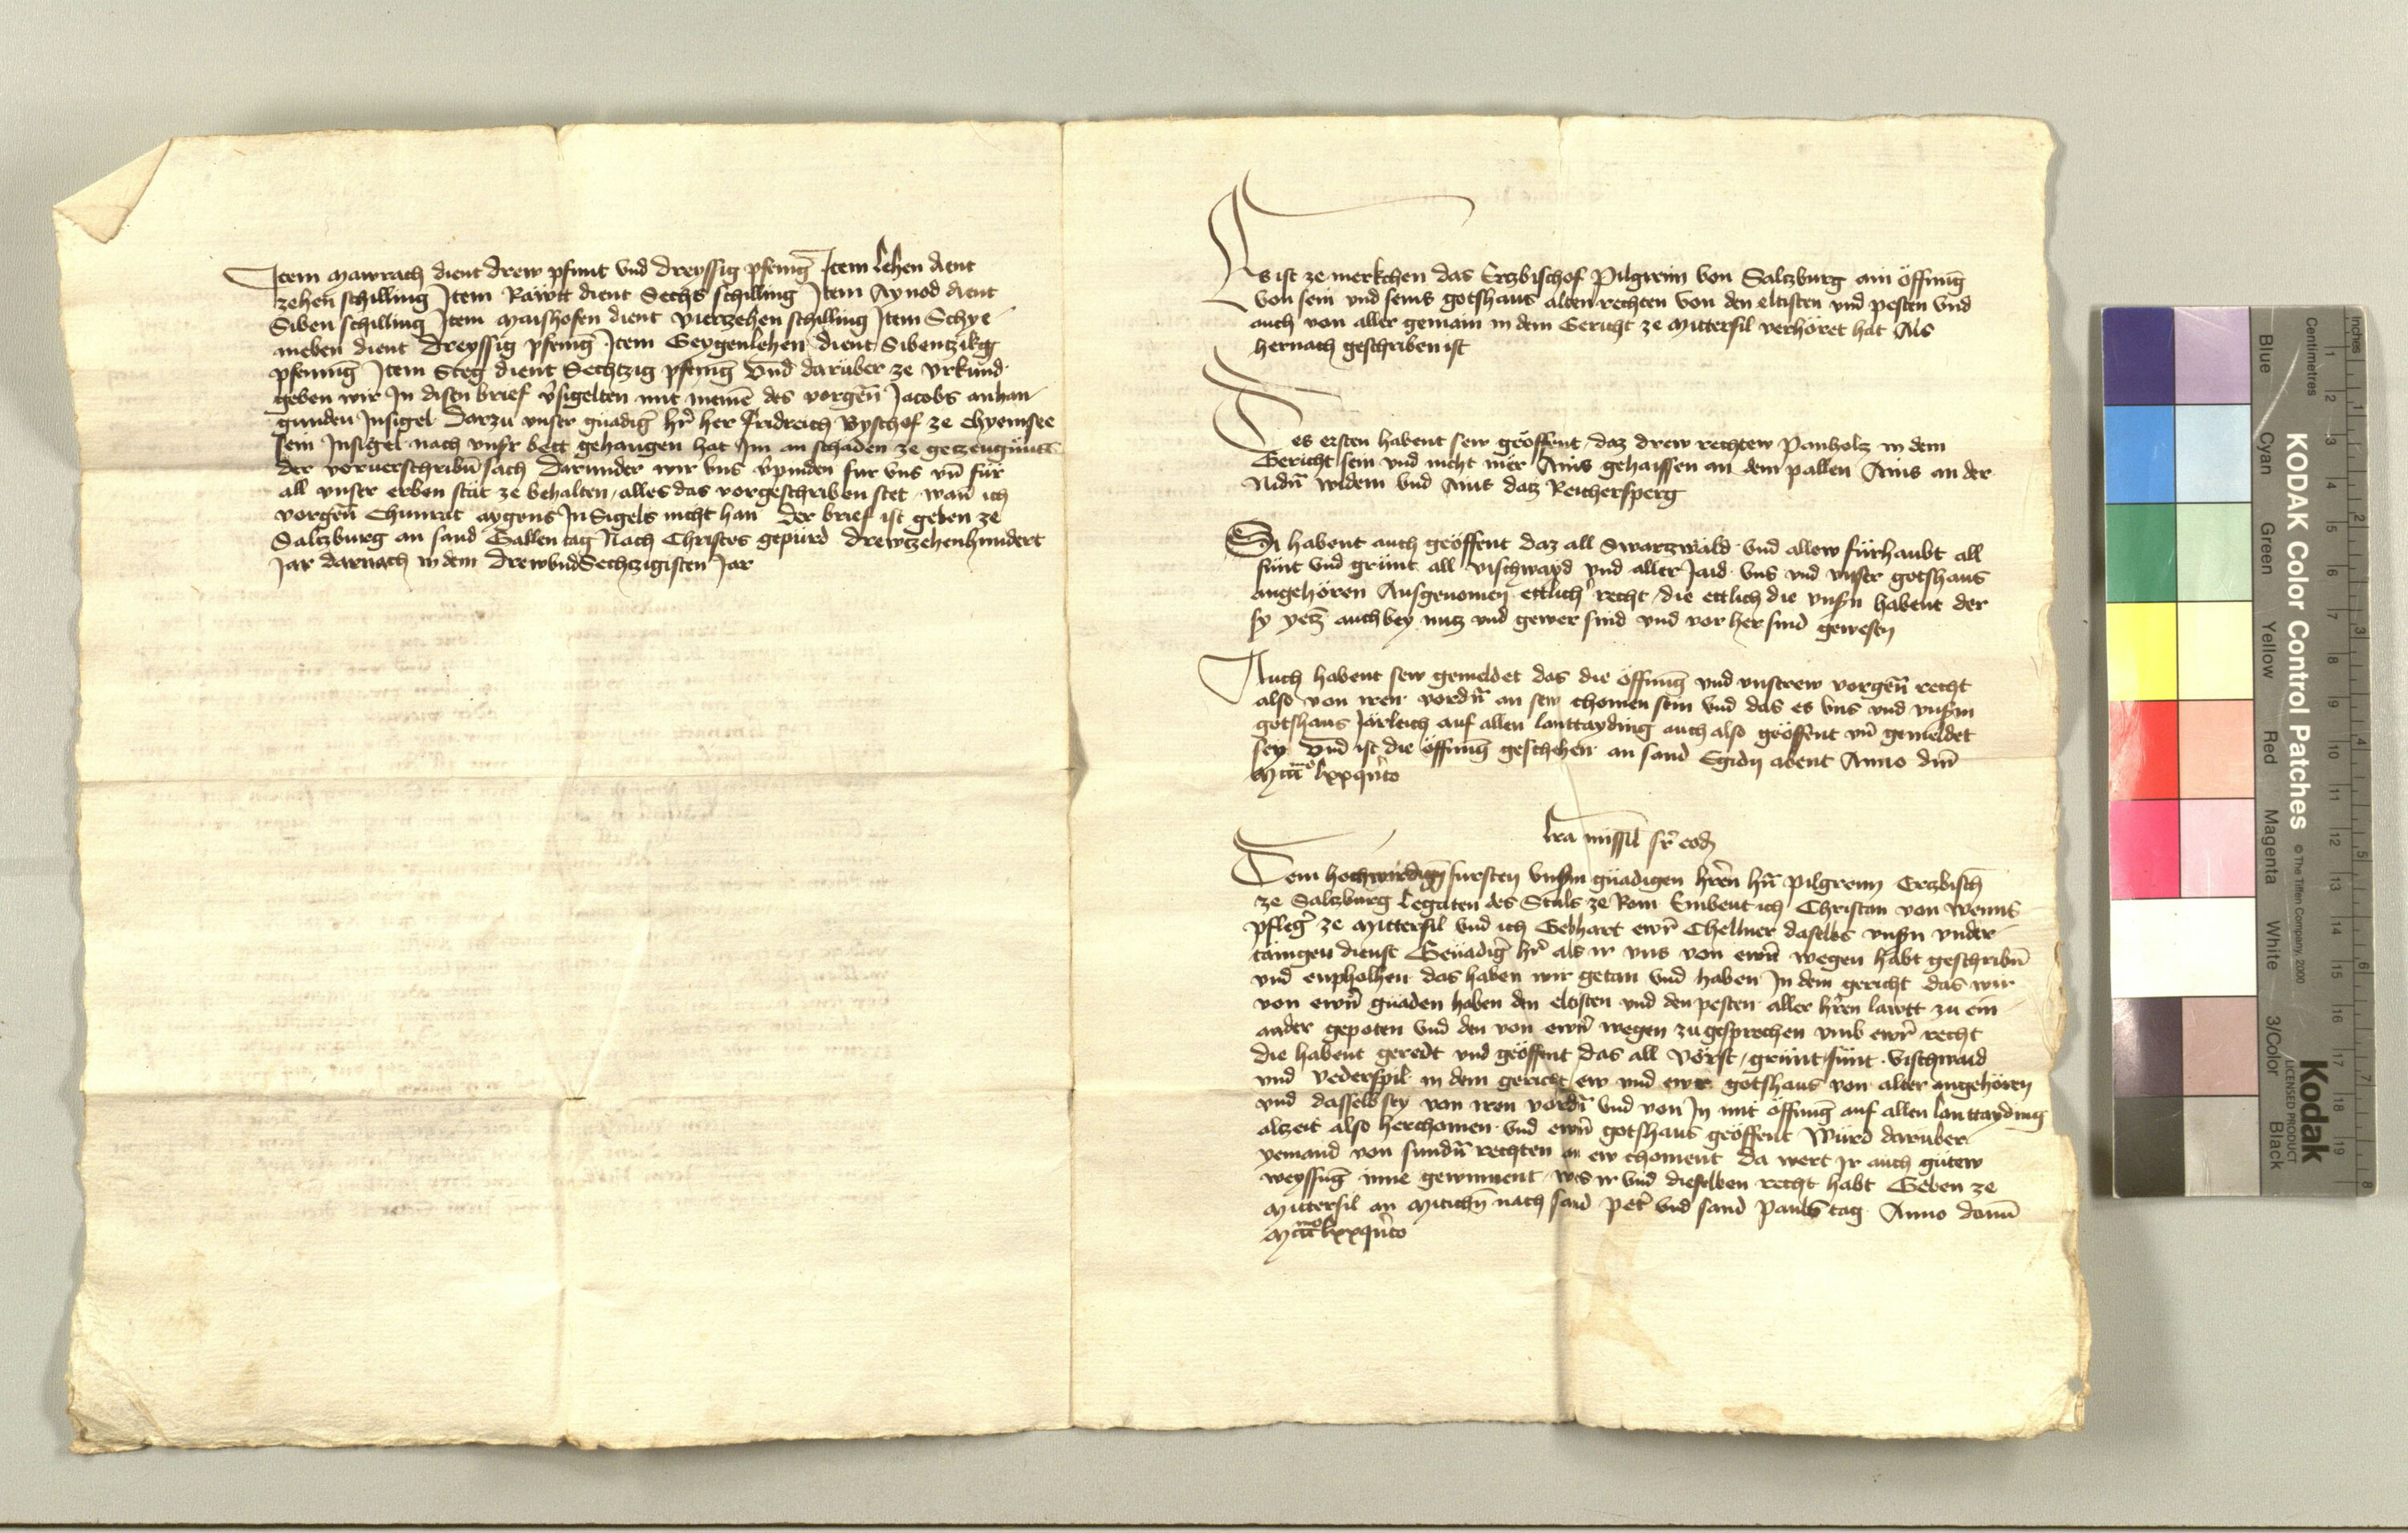 Item Mawrach dient drew pfunt vnd dreyssig pfenīg Item Lehen dient
zehen schilling Item Räwtt dient Sechs schilling Item Aynod dient
Siben schilling Item Maishofen dient vierzehen schilling Item Schye
meben dient dreyssig pfenīg Item Geygenlehen dient Sibentzikg
pfennīg Item Steg dient Sechtzig pfenīg Vnd darüber ze vrkund
geben wir In disen brief v̄sigelten mit meinē des vorgeñ Jacobs anhan
gunden Insigel Darzu vnser gnadiḡ hr̄ her Fridreich Byschof ze Chyemsee
sein Insigel nach vnsr bett gehangen hat Im an schaden ze getzeugnüss
der voruerschribñ sach Darunder wir vns v̄pinden für vns vn̄ für
all vnser erben stät ze behalten alles das vorgeschriben stet wan̄ ich
vorgeñ Chunrat aygens InSigels nicht han Der brief ist geben ze
Saltzburg an sand Gallen tag Nach Christes gepurd drewtzehenhundert
Jar darnach in dem drewvndSechtzigisten Jar
Es ist ze merkchen das Erzbischof Pilgreim von Saltzburg ain öffnūg
von sein vnd seins gotshaus alten rechten von den eltisten vnd pesten vnd
auch von aller gemain in dem Gericht ze Mittersil verhöret hat Als
hernach geschriben ist
Des ersten habent sew geöffent daz drew rechtew Panholz in dem
Gericht sein vnd nicht mer Ains gehaissen an dem pallen Ains an der
Nidn̄ widem vnd Ains datz Reichersperg
Si habent auch geöffent daz all Swartzwäld vnd allew fürhaubt all
sünt vnd grünt all vischwayd vnd aller Jaid vns vnd vnser gotshaus
angehören Ausgenomen ettlich recht die ettlich die vnsn̄ habent der
sy yetz auch bey nutz vnd gewer sind vnd vor her sind gewesen
Auch habent sew gemeldet das die öffnūg vnd vnserew vorgeñ recht
also von iren vordn̄ an sew chomen sein vnd das es vns vnd vnserm
gotshaus Järleich auf allen lanttayding auch also geöffent vn̄ gemeldet
sey Vnd ist die öffnūg geschehen an sand Egidy abent Anno dn̄i
Mccc̄o lxxqn̄to
Lra missil sr̄ eod
Dem hochwirdign̄ fursten vnserm gnädigen hrēn hn̄ Pilgreim Erzbisch̄
ze Saltzburg Legaten des Stuls ze Rom Embeut ich Christan von Wenns
pfleḡ ze Mittersil vnd ich Gebhart ewr̄ Chellner daselbs vnsn̄ vnder
tänigen dienst Genadiḡ hr̄ als ir vns von ewn̄ wegen habt geschribn̄
vnd enpholhen das haben wir getan vnd haben In dem gericht das wir
von ewn̄ gnaden haben den eltisten vnd den pesten aller hrēn lawtt zu ein
ander gepoten vnd den von ewn̄ wegen zugesprechen vmb ewr̄ recht
die habent geredt vnd geöffent das all vörst grünt sünt vischwaid
vnd vederspil in dem gericht ew vnd ewr gotshaus von alter angehören
vnd dasselb sey von iren vordn̄ vnd von In mit öffnūg auf allen lanttayding
alzeit also herchomen vnd ewn̄ gotshaus geöffent Würd darüber
yemand von sundn̄ rechten an ew choment da wert Ir auch gütew
weyssūg inne gewinnent was ir vnd dieselben recht habt Geben ze
Mittersil an Mitichn̄ nach sand Pet̄ vnd sand Pauls tag Anno domī
Mccc̄mo lxxqn̄to
KODAK Color Control Patches
© The Tiffen Company, 2000
Kodak
LICENSED PRODUCT
Inches
Centimetres
Blue
Cyan
Green
Yellow
Red
Magenta
White
3/Color
Black
1 2 3 4 5 6 7 8 9 10 11 12 13 14 15 16 17 18 19
1 2 3 4 5 6 7 8